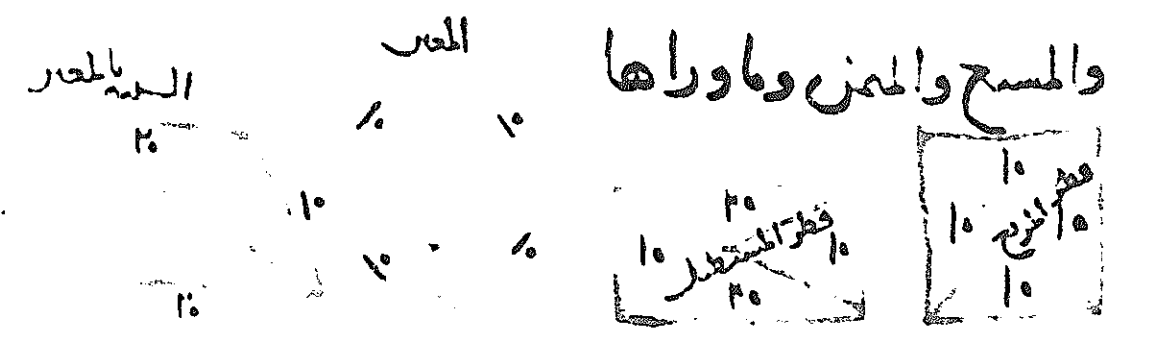 والمسبع والمثمن وما وراها
المعين
الشبيه بالمعين
١٠
قطر المربع
١٠ ١٠
١٠
٢٠
قطر المستطيل
١٠ ١٠
٢٠
١٠ ١٠
١٠ ١٠
٢٠
١٠
٢٠